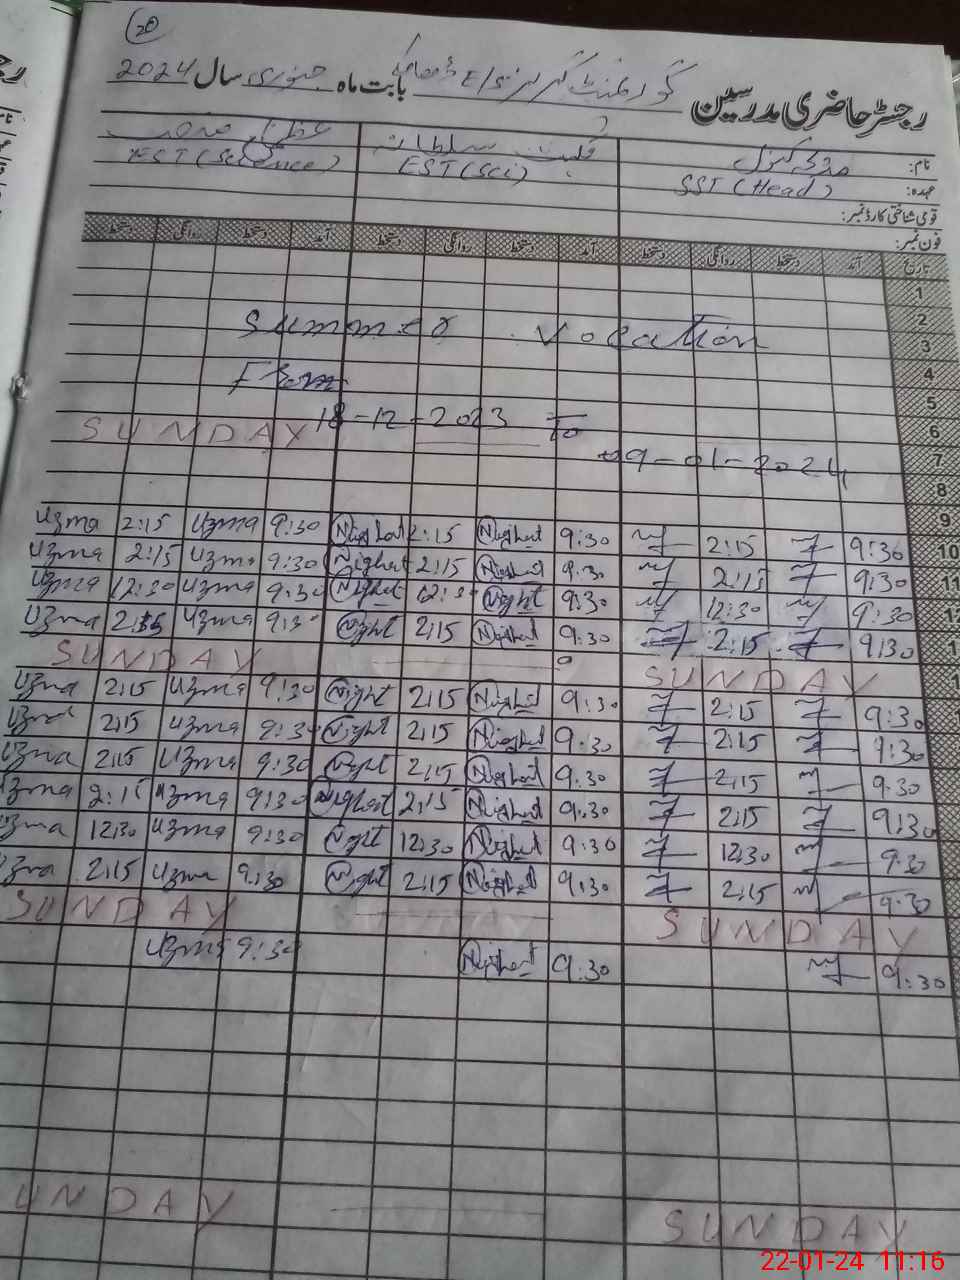 20
رجسٹر حاضری مدرسین گورنمنٹ گرلز E/S بابت ماہ جنوری سال 2024
نام:
سلطانہ
عہدہ: SST (Head) EST (Sci) EST (Science)
قومی شناختی کارڈ نمبر:
فون نمبر:
تاریخ آمد دستخط روانگی دستخط آمد دستخط روانگی دستخط آمد دستخط روانگی دستخط
1
2
Summer Vocation
3
From
4
5
18-12-2023 To
6
SUNDAY
09-01-2024
7
8
9
Uzma 2:15 Uzma 9:30 Nighat 2:15 Nighat 9:30 2:15 9:30 10
Uzma 2:15 Uzma 9:30 Nighat 2:15 Nighat 9:30 2:15 9:30 11
Uzma 12:30 Uzma 9:30 Nighat 12:30 Night 9:30 12:30 9:30 12
Uzma 2:15 Uzma 9:30 Night 2:15 Nighat 9:30 2:15 9:30 1
SUNDAY SUNDAY 1
Uzma 2:15 Uzma 9:30 Night 2:15 Nighat 9:30 2:15 9:30
Uzma 2:15 Uzma 9:30 Night 2:15 Nighat 9:30 2:15 9:30
Uzma 2:15 Uzma 9:30 Night 2:15 Nighat 9:30 2:15 9:30
Uzma 2:15 Uzma 9:30 Nighat 2:15 Nighat 9:30 2:15 9:30
Uzma 12:30 Uzma 9:30 Night 12:30 Nighat 9:30 12:30 9:30
Uzma 2:15 Uzma 9:30 Night 2:15 Nighat 9:30 2:15 9:30
SUNDAY SUNDAY
Uzma 9:30 Nighat 9:30 9:30
UNDAY SUNDAY
22-01-24 11:16